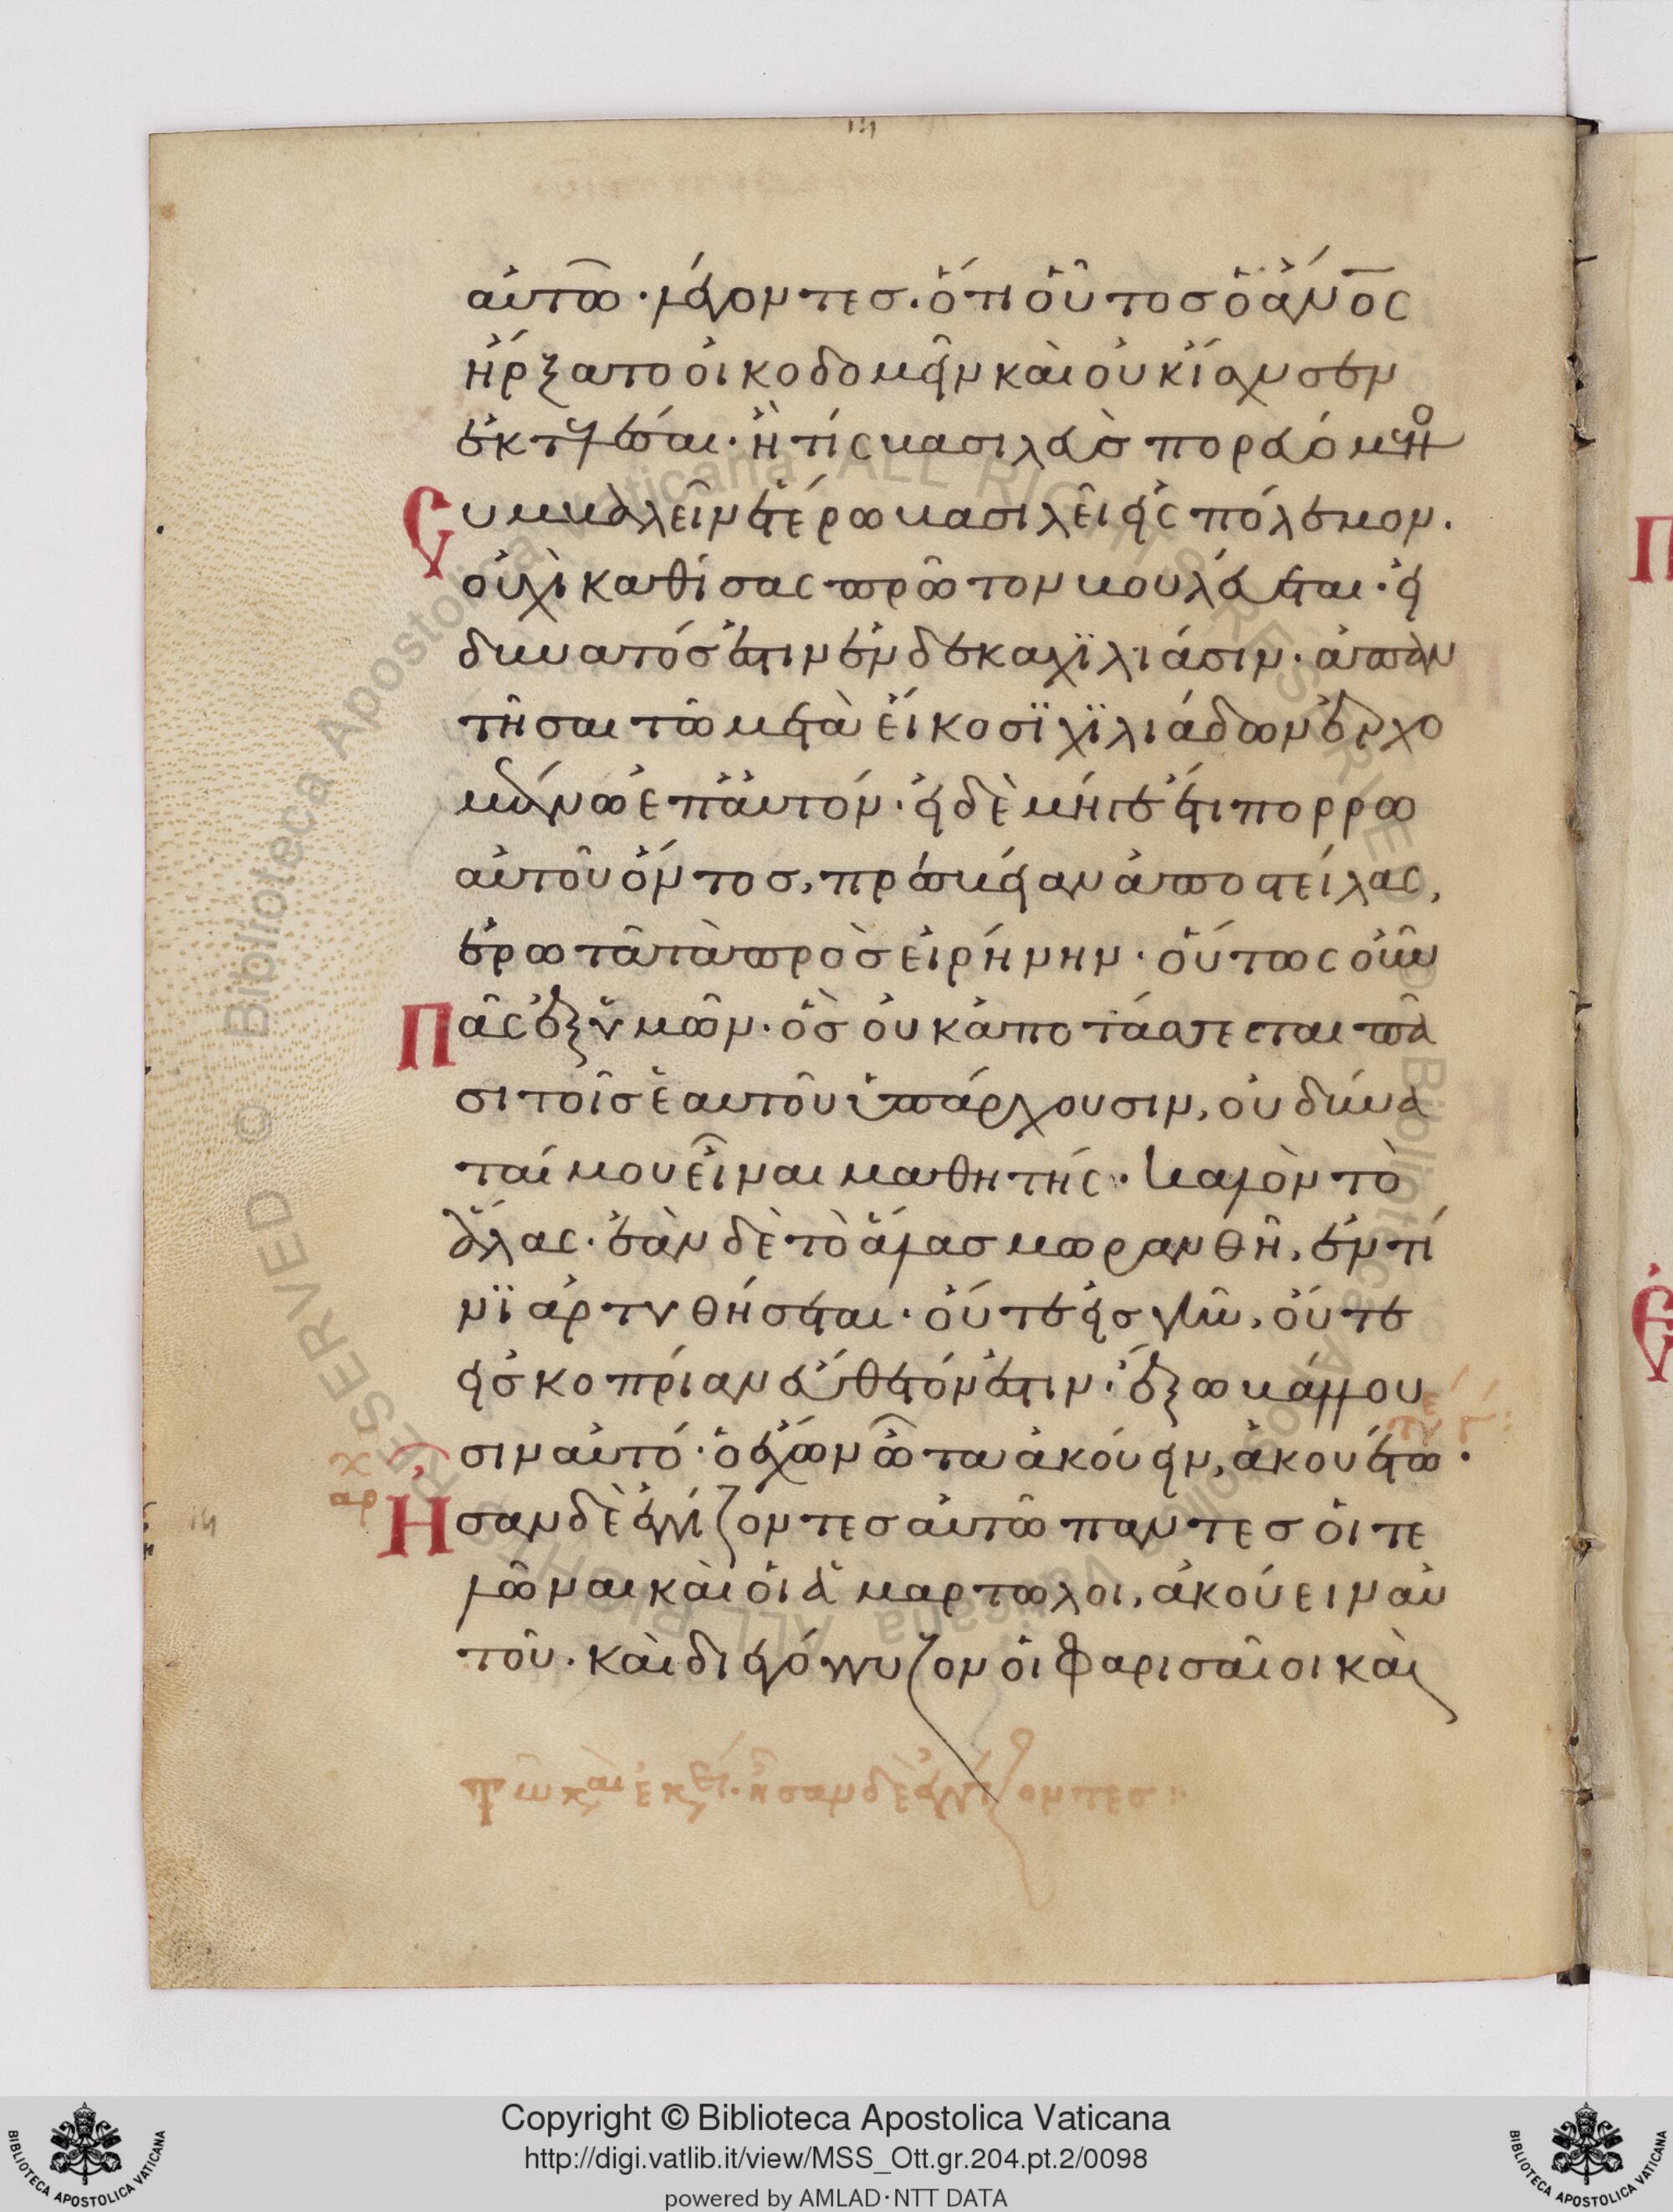 αὐτῶ· λέγοντες. ὅτι οὗτος ὁ ἄν̅ος
ἤρξατο οἰκοδομεῖν καὶ οὐκ ἴσχυσεν
ἐκτελέσαι· ἢ τίς βασιλεὺς πορευόμενος
Συμβαλεῖν ἑτέρω βασιλεῖ εἰς πόλεμον.
οὐχὶ καθίσας πρῶτον βουλεύεται· εἰ
δυνατός ἐστιν ἐν δέκα χϊλιάσιν· ἀπαν
τῆσαι τῶ μετὰ εἴκοσϊ χϊλιάδων ἐρχο
μένω ἐπ' αὐτόν· εἰ δὲ μήγε ἔτι πορρω
αὐτοῦ ὄντος, πρέσβείαν ἀποστείλας,
ἐρωτᾶ τὰ πρὸς εἰρήνην· οὕτως οὖν
Πᾶς ἐξ ὑμῶν· ὃς οὐκ ἀποτάσσεται πᾶ
σι τοῖς ἑαυτοῦ ὑπάρχουσιν, οὐ δύνα
ταί μου εἶναι μαθητής· Καλὸν τὸ
ἅλας· ἐὰν δὲ τὸ ἅλας μωρανθῆ, ἐν τί
νϊ ἀρτυθήσεται· οὔτε εἰς γῆν, οὔτε
εἰς κοπρίαν εὔθετόν ἐστιν· ἔξω βάλλου
σιν αὐτό· ὁ ἔχων ὦτα ἀκούειν, ἀκουέτω·
Ἦσαν δὲ ἐγγίζοντες αὐτῶ παντες οἱ τε
λῶναι καὶ οἱ ἁμαρτωλοι, ἀκούειν αὐ
τοῦ. καὶ διεγόγγυζον οἱ Φαρισαῖοι καὶ
Copyright © Biblioteca Apostolica Vaticana
http://digi.vatlib.it/view/MSS_Ott.gr.204.pt.2/0098
powered by AMLAD·NTT DATA